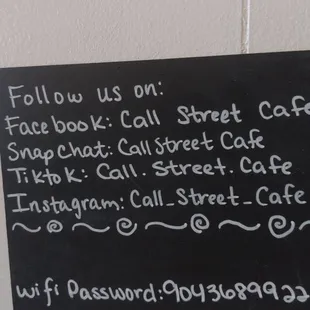 Follow us on:
Facebook: Call Street Cafe
Snapchat: Call Street Cafe
Tiktok: Call.Street.Cafe
Instagram: Call_Street_Cafe
wifi Password: 9043689922